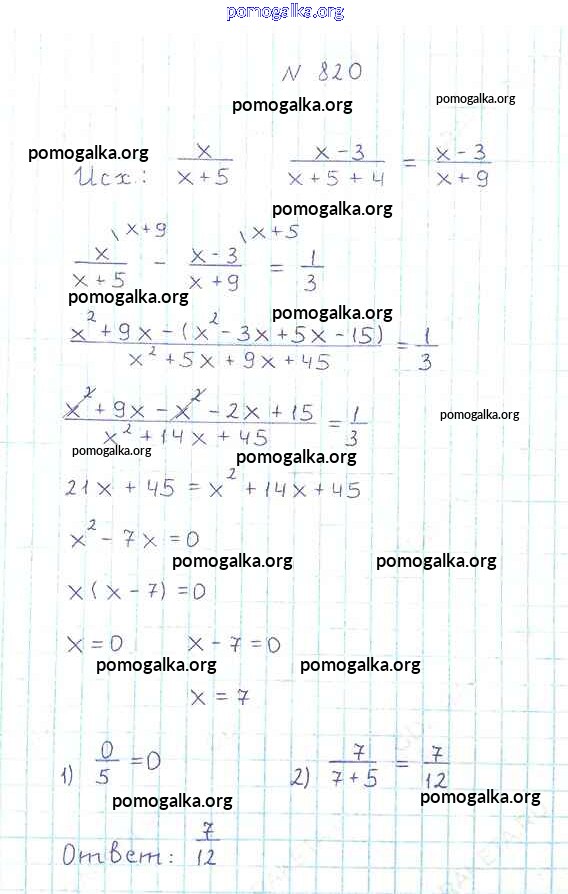 pomogalka.org
N 820
pomogalka.org pomogalka.org
pomogalka.org
Исх: x/(x+5) (x-3)/(x+5+4) = (x-3)/(x+9)
pomogalka.org
x/(x+5) \x+9 - (x-3)/(x+9) \x+5 = 1/3
pomogalka.org
pomogalka.org
(x²+9x-(x²-3x+5x-15))/(x²+5x+9x+45) = 1/3
(x²+9x-x²-2x+15)/(x²+14x+45) = 1/3
pomogalka.org
pomogalka.org
pomogalka.org
21x+45=x²+14x+45
x²-7x=0
pomogalka.org pomogalka.org
x(x-7)=0
x=0 x-7=0
pomogalka.org pomogalka.org
x=7
1) 0/5 =0 2) 7/(7+5) = 7/12
pomogalka.org pomogalka.org
Ответ: 7/12